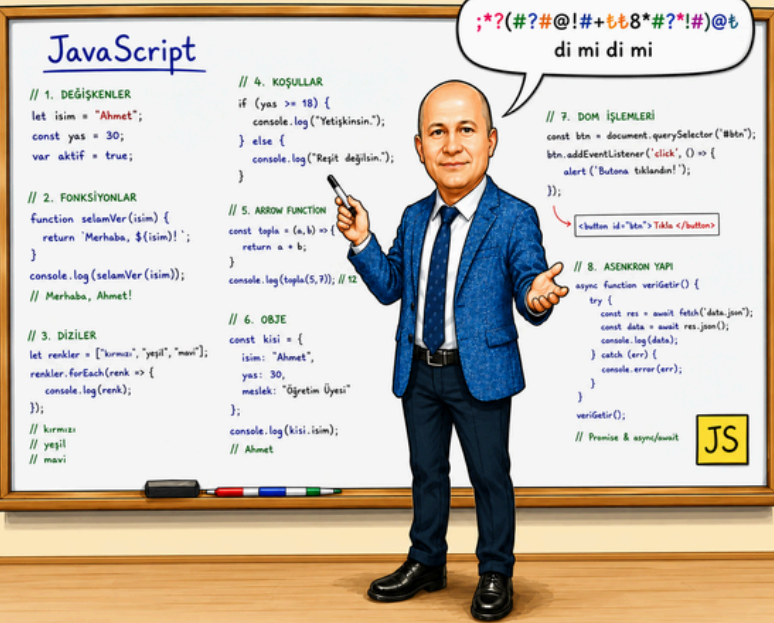 JavaScript
// 1. DEĞİŞKENLER
let isim = "Ahmet";
const yas = 30;
var aktif = true;
// 2. FONKSİYONLAR
function selamVer(isim) {
return `Merhaba, $(isim)! `;
}
console.log(selamVer(isim));
// Merhaba, Ahmet!
// 3. DİZİLER
let renkler = ["kırmızı", "yeşil", "mavi"];
renkler.forEach(renk => {
console.log(renk);
});
// kırmızı
// yeşil
// mavi
// 4. KOŞULLAR
if (yas >= 18) {
console.log("Yetişkinsin.");
} else {
console.log("Reşit değilsin.");
}
// 5. ARROW FUNCTION
const topla = (a, b) => {
return a + b;
}
console.log(topla(5, 7)); // 12
// 6. OBJE
const kisi = {
isim: "Ahmet",
yas: 30,
meslek: "Öğretim Üyesi"
};
console.log(kisi.isim);
// Ahmet
;*?(#?#@!#+₺₺8*#?*!#)@₺
di mi di mi
// 7. DOM İŞLEMLERİ
const btn = document.querySelector('#btn");
btn.addEventListener('click', () => {
alert ('Butona tıklandın!');
});
<button id="btn"> Tıkla </button>
// 8. ASENKRON YAPI
async function veriGetir() {
try {
const res = await fetch('data.json");
const data = await res.json();
console.log(data);
} catch (err) {
console.error(err);
}
}
veriGetir();
// Promise & async/await
JS